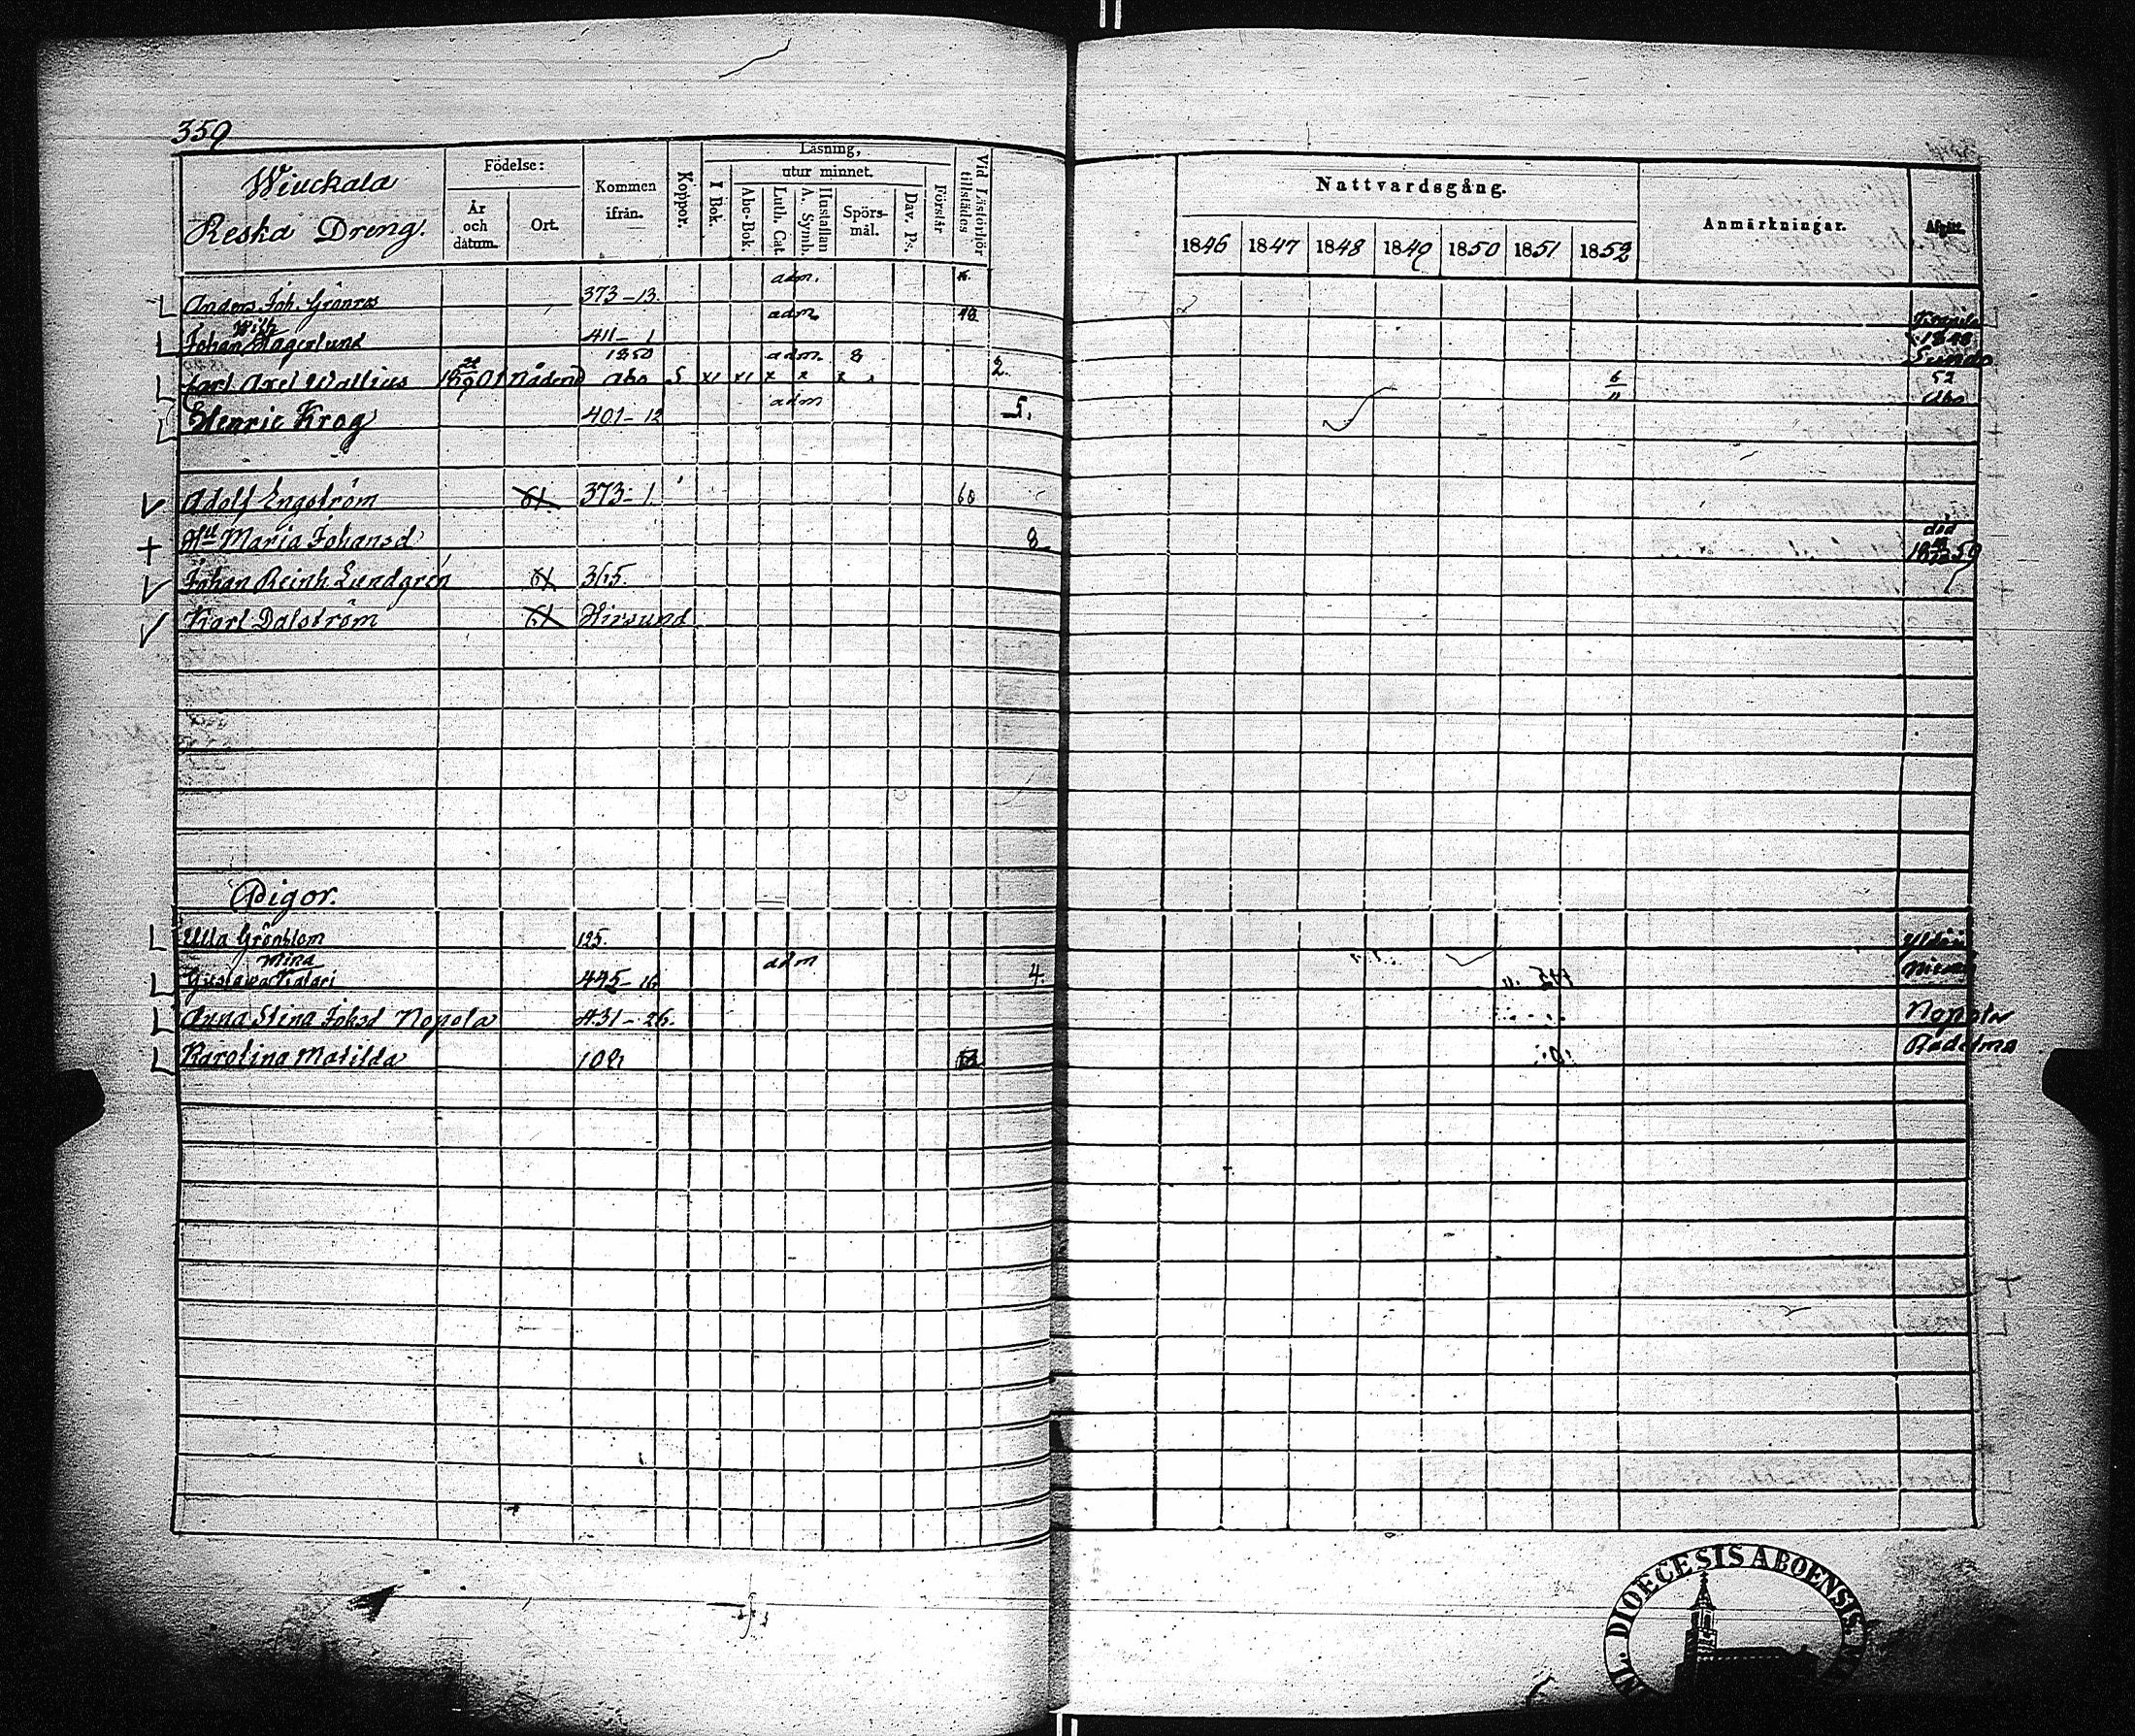 359
Wiuckala
Reska Dreng.
Födelse:
År och dåtum.
Ort.
Kommen ifrån.
Koppor.
Läsning,
utur minnet.
I Bok.
Abc-Bok.
Luth. Cat.
A. Symb.
Hustaflan
Spörsmål.
Dav. Ps.
Förstår
Vid Läsförhör tillstädes
Nattvardsgång.
1846 1847 1848 1849 1850 1851 1852
Anmärkningar.
Afgått.
Anders Joh. Grönros 373-13. adm.
Johan Wilh Hagerlund 411-1 adm 1848
Carl Axel Wallius 1850 Åbo 5 adm. 8 2. 6 52
Henric Krog 401-12 adm 5. Åbo
Adolf Engström 61. 373-1. 60
Hu Maria Johansd 8 död 1859
Johan Reinh. Lundgren 61 365.
Karl Dalström 61 Hirsund
Pigor.
Ulla Grönblom 125.
Gustava mina 445-16 adm 4.
Anna Stina Johsd Nopola 431-26. Nopola
Karolina Matilda 102
DIOECESIS ABOENSIS